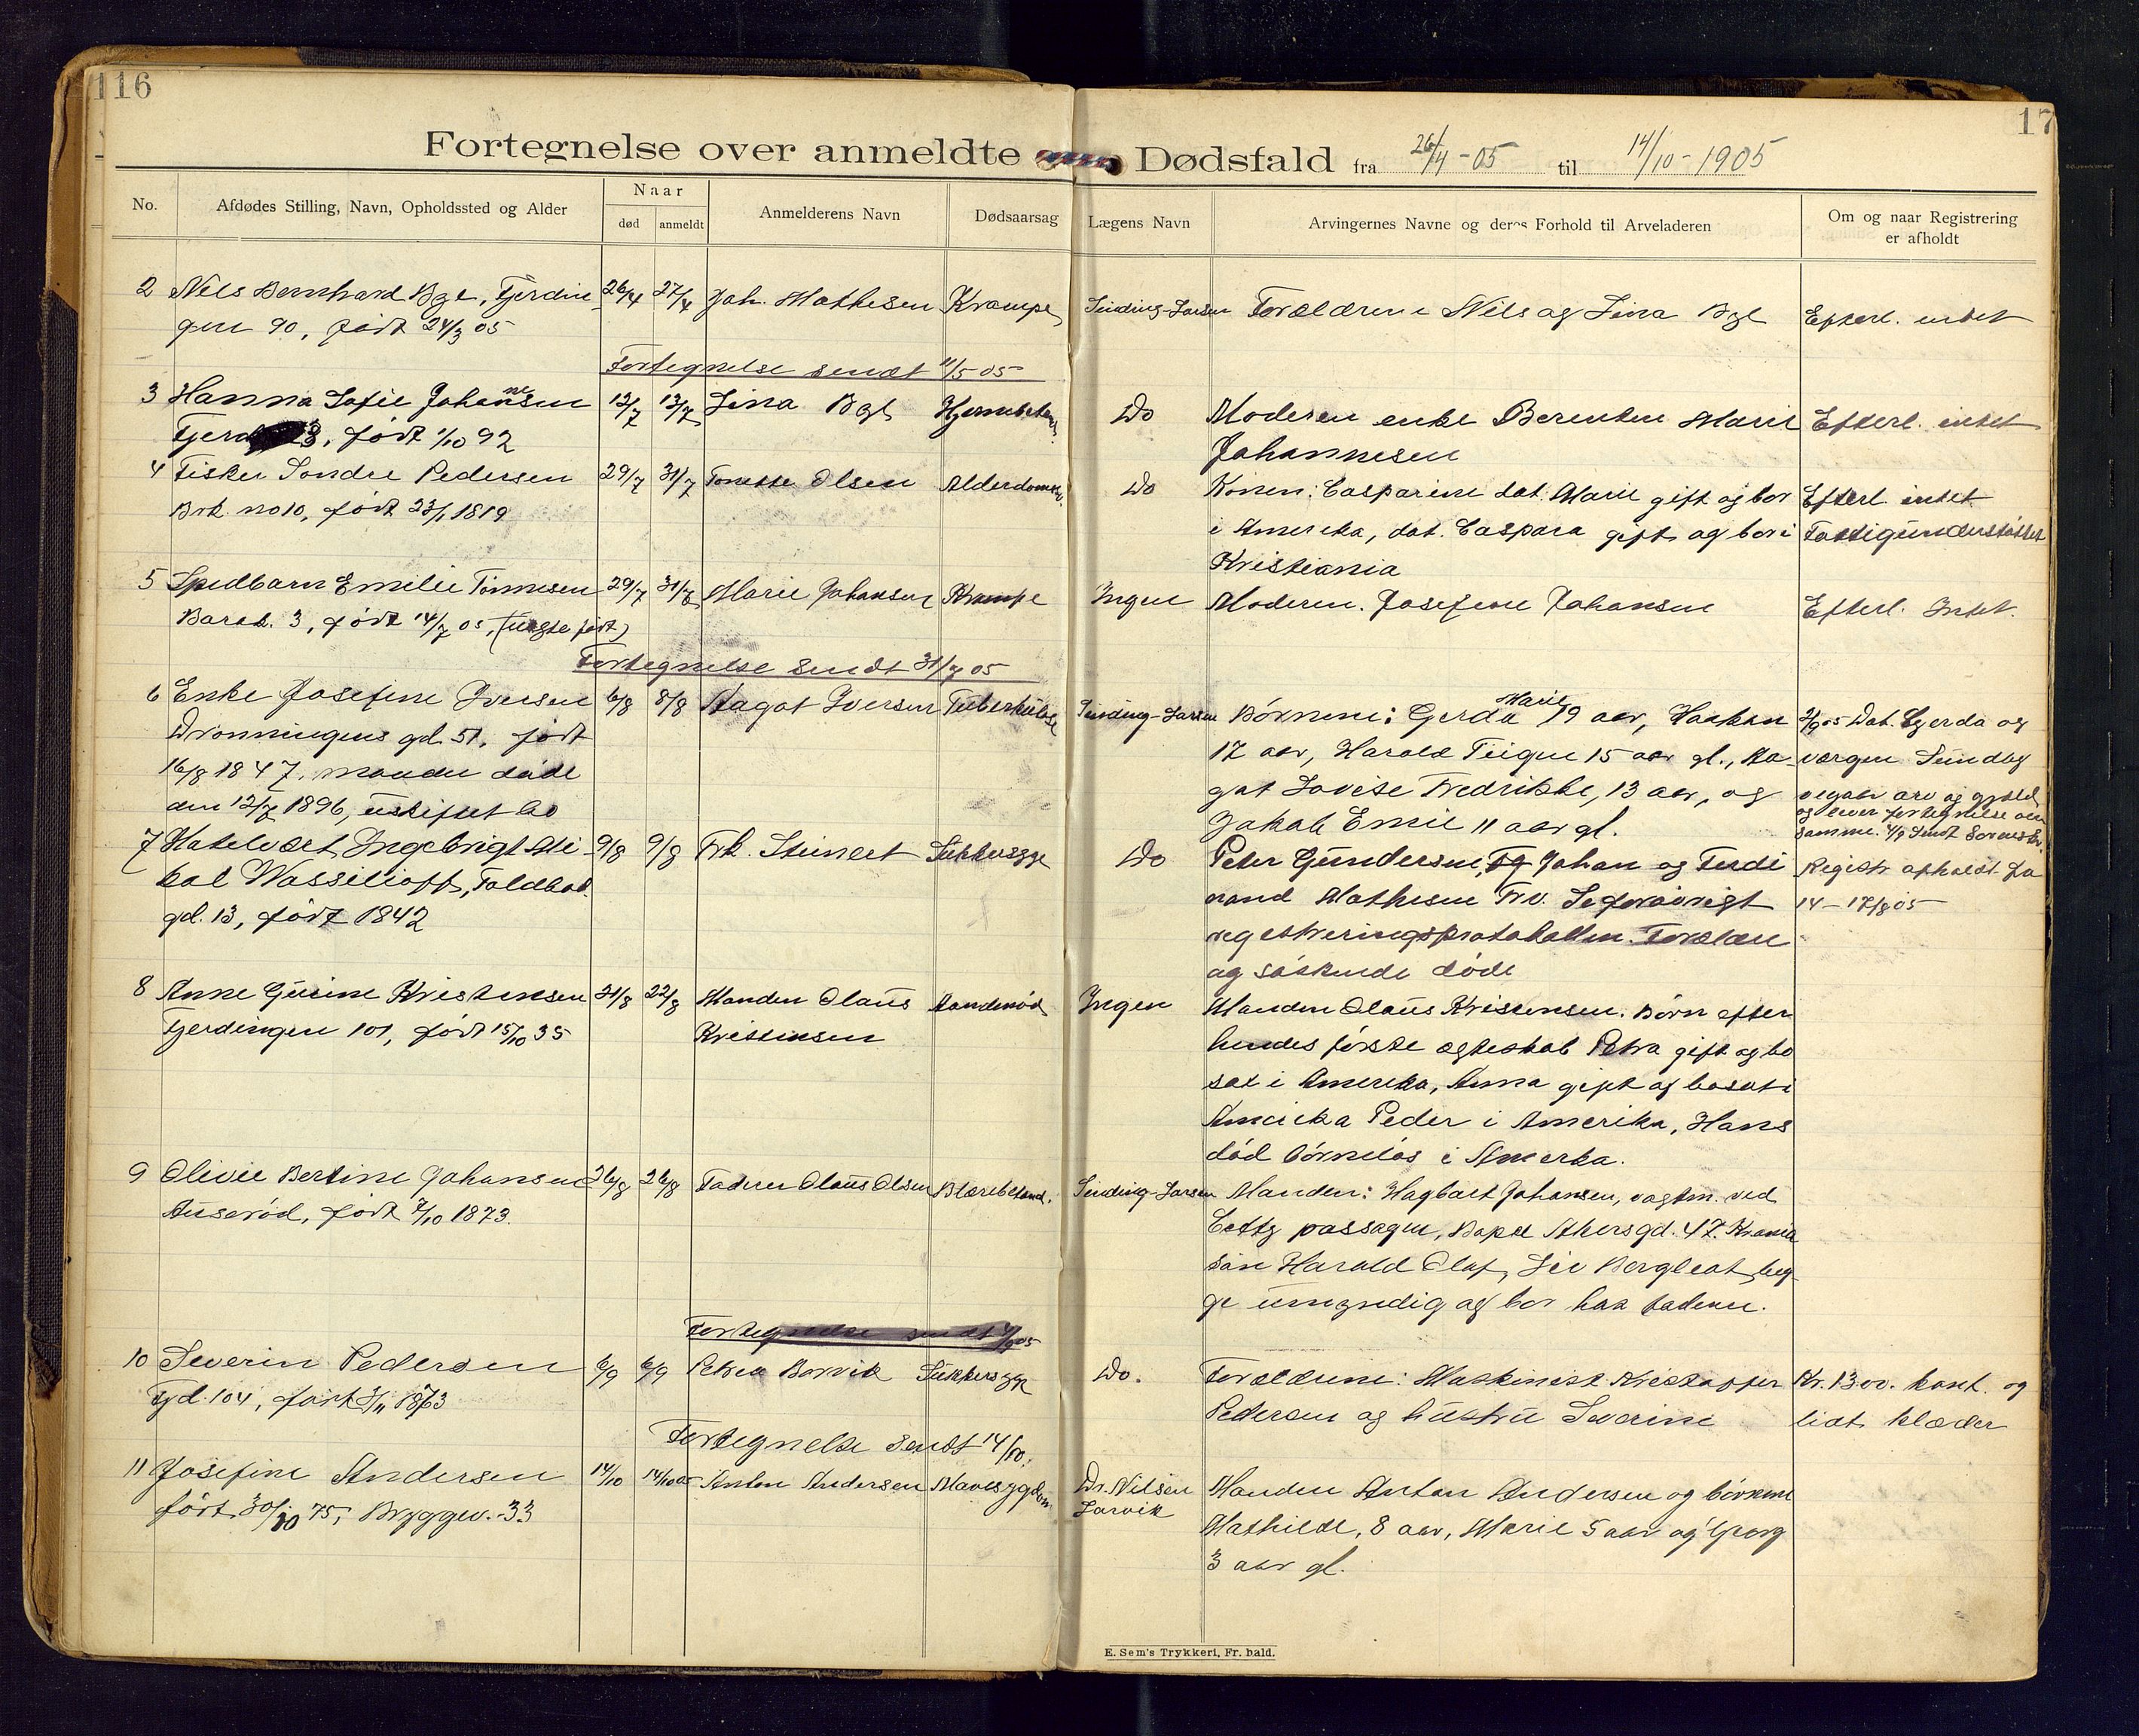 116
17
Fortegnelse over anmeldte Dødsfald fra 26/4-05 til 14/10-1905
No.
Afdødes Stilling, Navn, Opholdssted og Alder
Naar
død
anmeldt
Anmelderens Navn
Dødsaarsag
Lægens Navn
Arvingernes Navne og deres Forhold til Arveladeren
Om og naar Registrering
er afholdt
2 Nils Bernhard Bgl, Fjerdin 26/4 27/4 Joh. Mathisen Krampe Sinding-Larsen Forældrene Nils og Lina Bgl Efterl. intet
gen 90, født 24/3 05
Fortegnelse sendt 11/5 05
3 Hanna Sofie Johannesen 12/7 13/7 Lina Bgl Do Moderen enke Berentine Marie Efterl. intet
født 1/10 92 Johannesen
4 Fisker Sondre Pedersen 29/7 31/7 Tonette Olsen Alderdomsv. Do Konen: Casparine dat. Marie gift og bor Efterl intet
Brk. no 10, født 23/1 1819 i Amerika, dat. Caspara gift og bor i Fattigunderstøttet
Kristiania
5 Spedbarn Emilie Tønnesen 29/7 31/7 Marie Johansen Krampe Ingen Moderen. Josefine Johansen Efterl. Intet.
Barak. 3, født 14/7 05, (uægte født)
Fortegnelse sendt 31/7 05
6 Enke Josefine Iversen 6/8 8/8 Aagot Iversen Tuberkulose Sinding-Larsen Børnene: Gerda Marie 19 aar, Haakon 2/9 05 Dat. Gerda og
Dronningens gd. 51, født 17 aar, Harald Trigve 15 aar gl., Aa- værgen Sundby
16/8 1847, manden døde got Lovise Fredrikke, 13 aar, og vegaar arv og gjæld
den 12/7 1896, uskiftet bo Jakob Emil 11 aar gl. og lever fortegnelse over
samme. 4/9 Sendt Sorenskr.
7 Ingebrigt Mi 9/8 9/8 Frk. Steinert Sukkersyge Do Peter Gundersen, Johan og Ferdi Registr. afholdt fra
kal Wassilioff, Toldbod nand Mathisen Frv. Se forøvrigt 14-17/8 05
gd. 13, født 1842 registreringsprotokollen. Forældre
og søskende døde
8 Anne Gurine Kristensen 21/8 22/8 Manden Olaus Aandenød Ingen Manden Olaus Kristensen. Børn efter
Fjerdingen 101, født 15/10 35 Kristensen hendes første ægteskab Petra gift og bo
sat i Amerika, Anna gift og bosat i
Amerika Peder i Amerika, Hans
død børneløs i Amerika.
9 Olivie Bertine Johansen 26/8 26/8 Faderen Olaus Olsen Blærebetænd. Sinding-Larsen Manden: Hagbart Johansen, vagtm. ved
Auserød, født 7/10 1873. City passagen, Bopæl Akersgd. 47. Krania
søn Harald Olaf, Liv Bergliot beg
ge umyndig og bor hos faderen.
Fortegnelse sendt 4/9 05
10 Severin Pedersen 6/9 6/9 Petrea Borvik Sukkersyge Do. Forældrene: Maskinist Kristoffer Kr. 13 00. kont. og
Fjd. 104, født 3/11 1873 Pedersen og hustru Severine lidt klæder
Fortegnelse sendt 14/10.
11 Josefine Andersen 14/10 14/10 05 Anton Andersen Mavesygdom Dr. Nilsen Manden Anton Andersen og børnene
født 30/10 75, Bryggev. 33 Larvik Mathilde, 8 aar, Marie 5 aar og Georg
3 aar gl.
E. Sem's Trykkeri, Fr. hald.